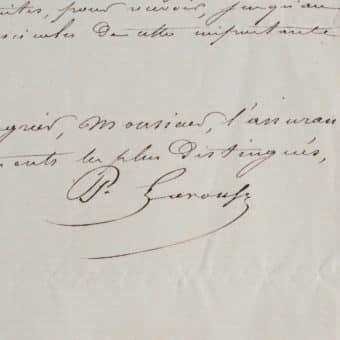 uites, pour recevoir, jusqu'au
scicules de cette importante
gréer, Monsieur, l'assuran
ments les plus distingués,
P. Larousse